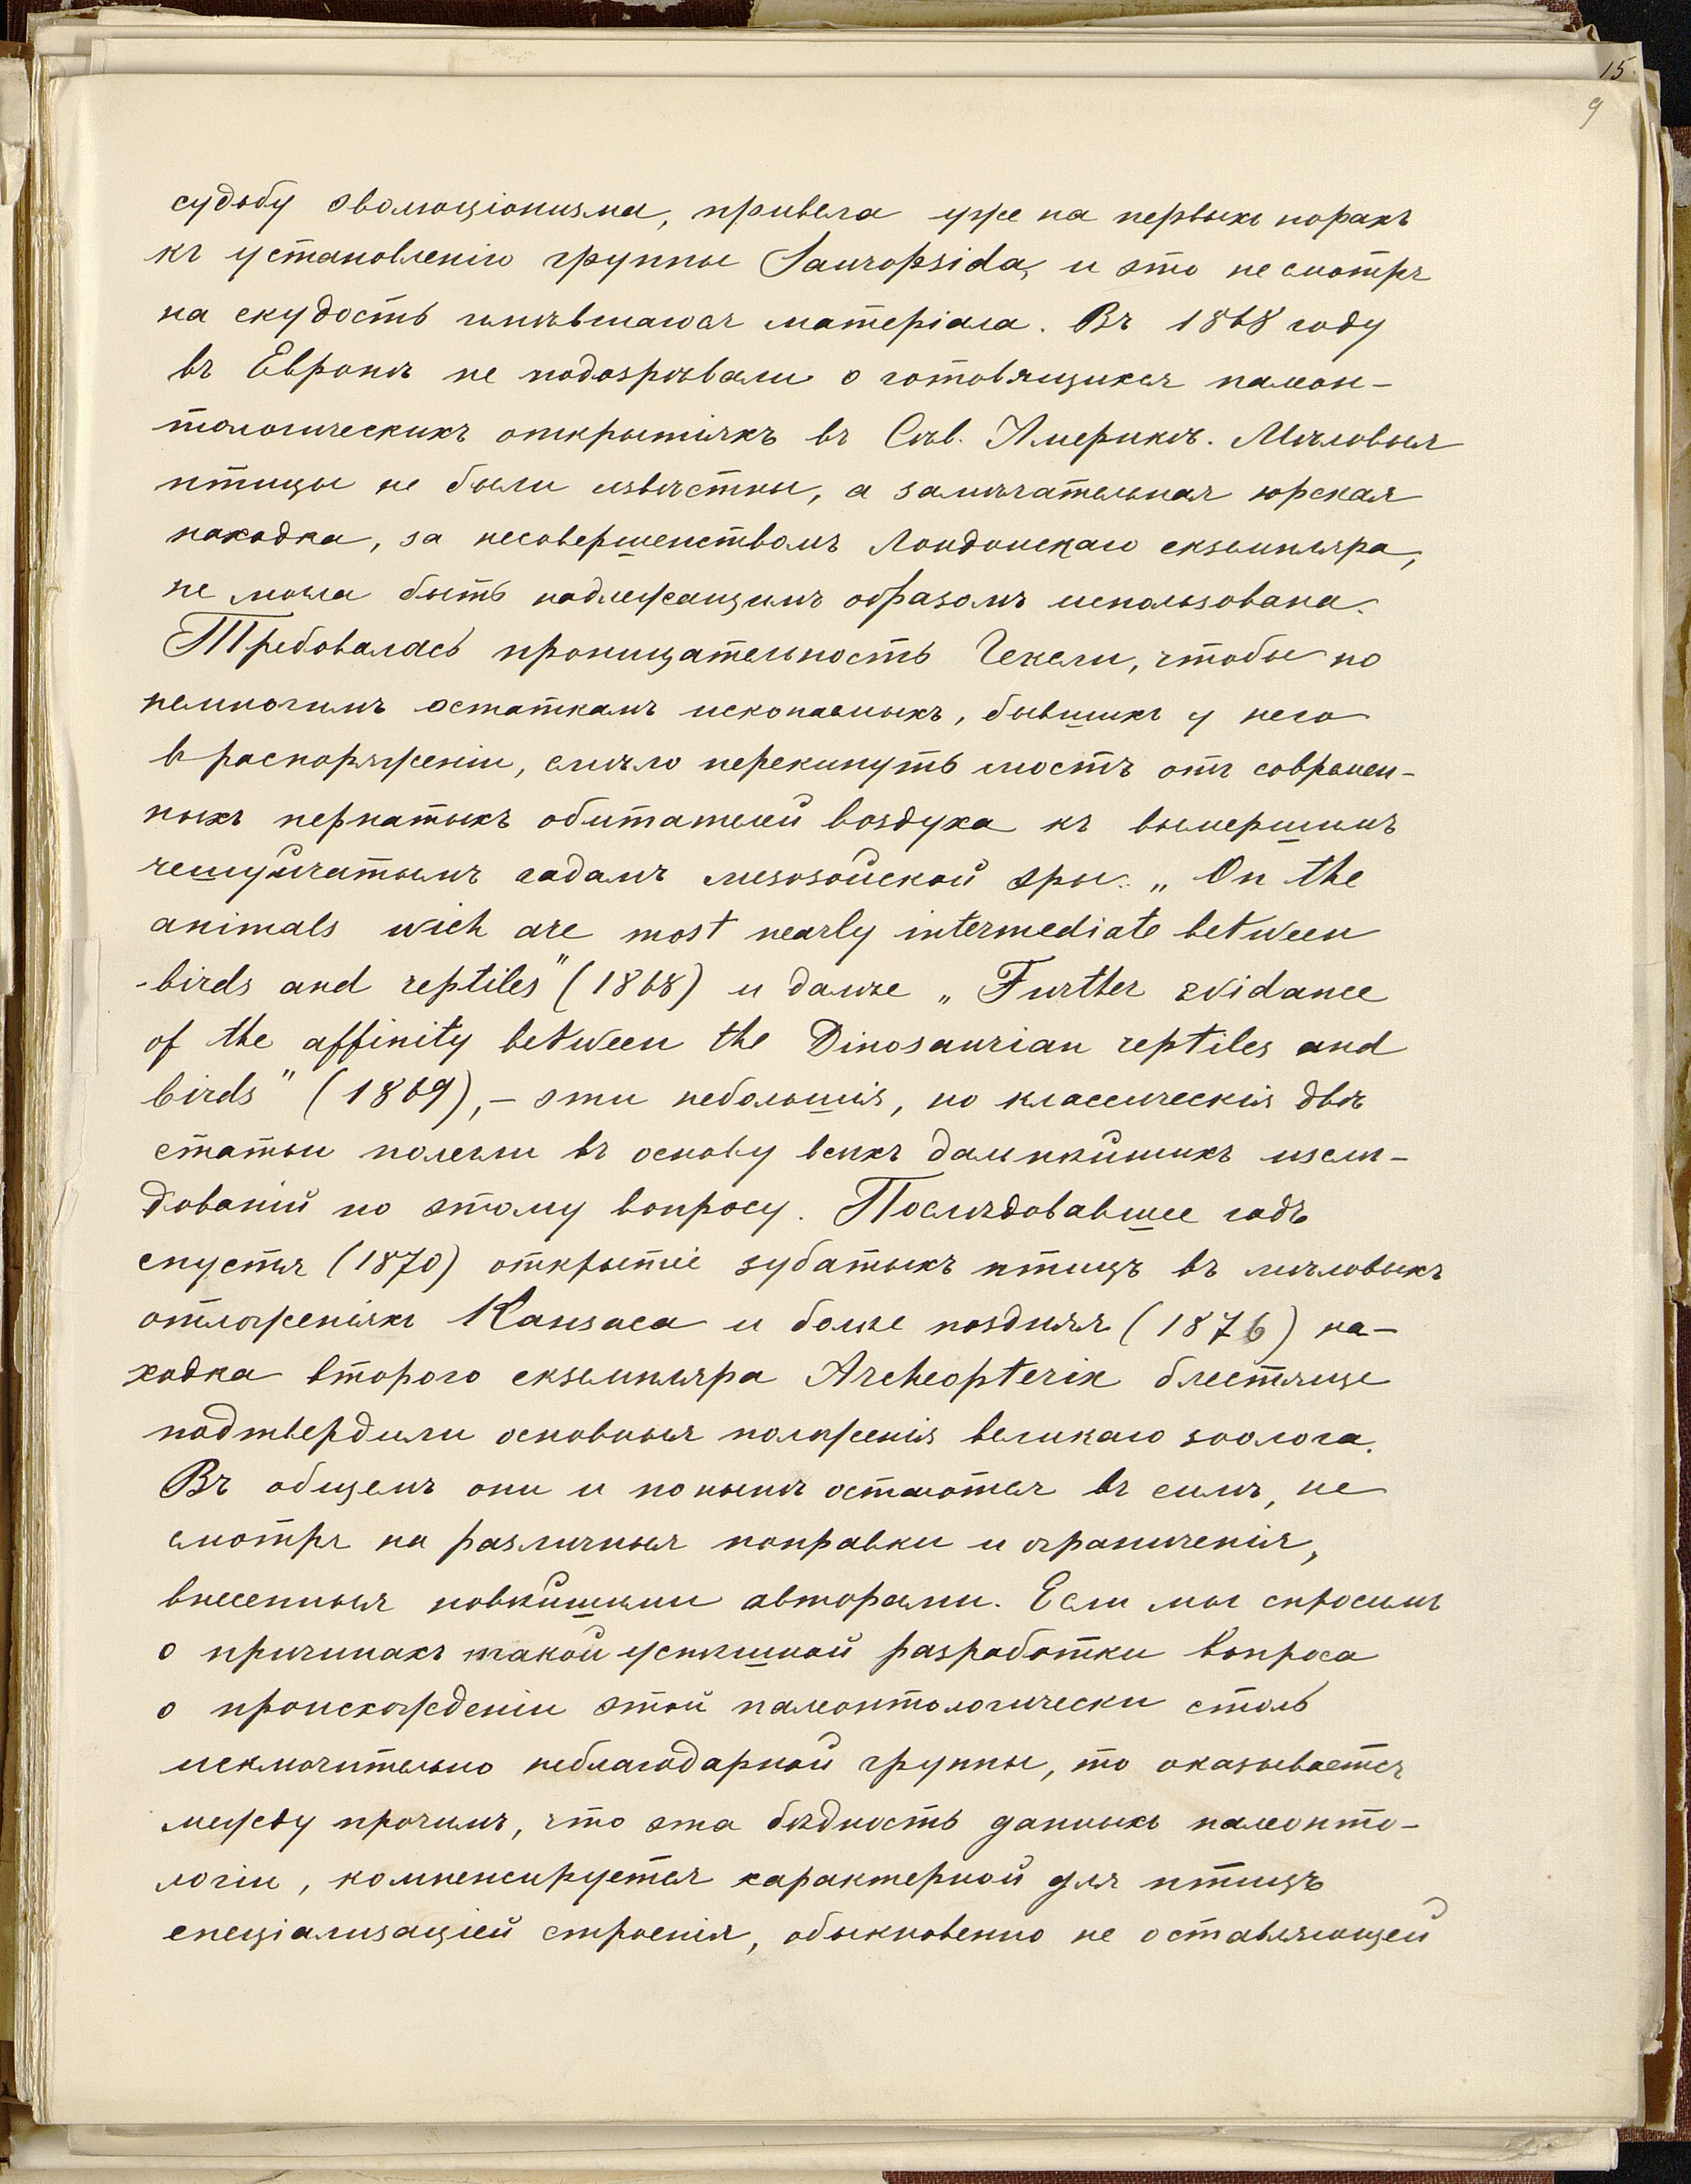 15
9
судьбу эволюціонизма, привела уже на первыхъ порахъ
къ установленію группы Sauropsida, и это не смотря
на скудость имѣвшагося матеріала. Въ 1868 году
въ Европѣ не подозрѣвали о готовящихся палеон-
тологическихъ открытіяхъ въ Сѣв. Америкѣ. Мѣловыя
птицы не были извѣстны, а замѣчательная юрская
находка, за несовершенствомъ Лондонскаго екземпляра,
не могла быть надлежащимъ образомъ использована.
Требовалась проницательность Гексли, чтобы по
немногимъ остаткамъ ископаемыхъ, бывшихъ у него
в распоряженіи, смѣло перекинуть мостъ отъ современ-
ныхъ пернатыхъ обитателей воздуха къ вымершимъ
чешуйчатымъ гадамъ мезозойской эры. „On the
animals wich are most nearly intermediate between
birds and reptiles" (1868) и далѣе „Further evidance
of the affinity between the Dinosaurian reptiles and
birds" (1869), – эти небольшія, но классическія двѣ
статьи полегли въ основу всѣхъ дальнѣйшихъ изслѣ-
дованій по этому вопросу. Послѣдовавшее годъ
спустя (1870) открытіе зубатыхъ птицъ въ мѣловыхъ
отложеніяхъ Кансаса и болѣе поздняя (1876) на-
ходка второго екземпляра Archeopterix блестяще
подтвердили основныя положенія великаго зоолога.
Въ общемъ они и понынѣ остаются въ силѣ, не
смотря на различныя поправки и ограниченія,
внесенныя новѣйшими авторами. Если мы спросимъ
о причинахъ такой успѣшной разработки вопроса
о происхожденіи этой палеонтологически столь
исключительно неблагодарной группы, то оказывается
между прочимъ, что эта бѣдность данныхъ палеонто-
логіи, компенсируется характерной для птицъ
спеціализаціей строенія, обыкновенно не оставляющей